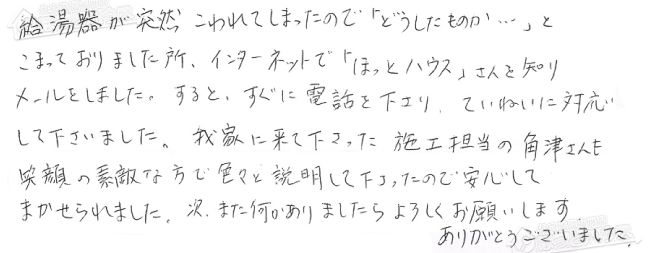 給湯器が突然 こわれてしまったので「どうしたものか…」と
こまっておりました所、インターネットで「ほっとハウス」さんを知り
メールをしました。すると、すぐに電話を下さり、ていねいに対応
して下さいました。我家に来て下さった 施工担当の角津さんも
笑顔の素敵な方で色々と説明して下さったので安心して
まかせられました。次、また何かありましたらよろしくお願いします。
ありがとうございました。